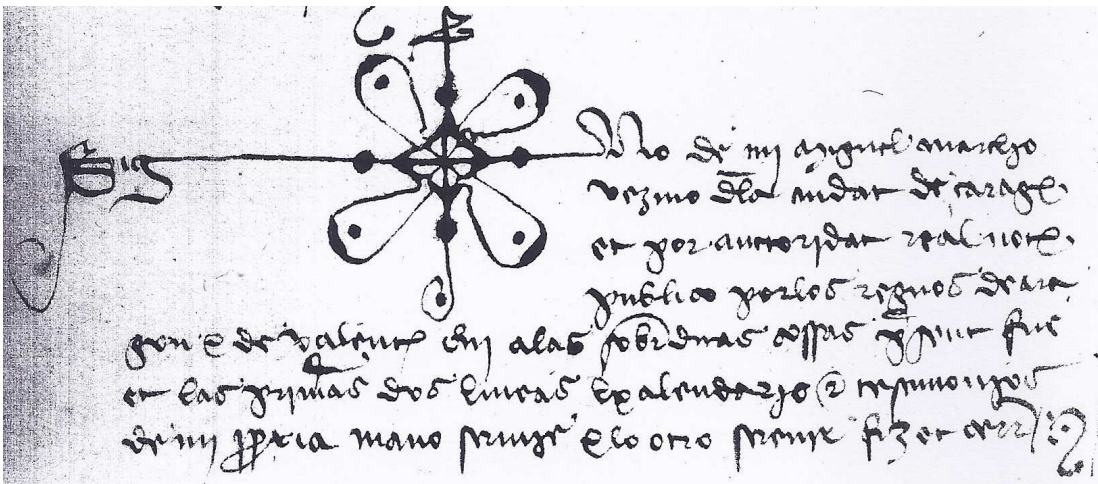 Sig no de mi miguel march
vezino dla ciudat de caragª.
et por auctoridat real notº.
publico por los regnos de ara
gon & de valencª qui a las sobrditas cossas psent fue
et las primas dos lineas kalendario & testimonyos
de mi ppria mano scriuie & lo otro screuir fiz et cerre